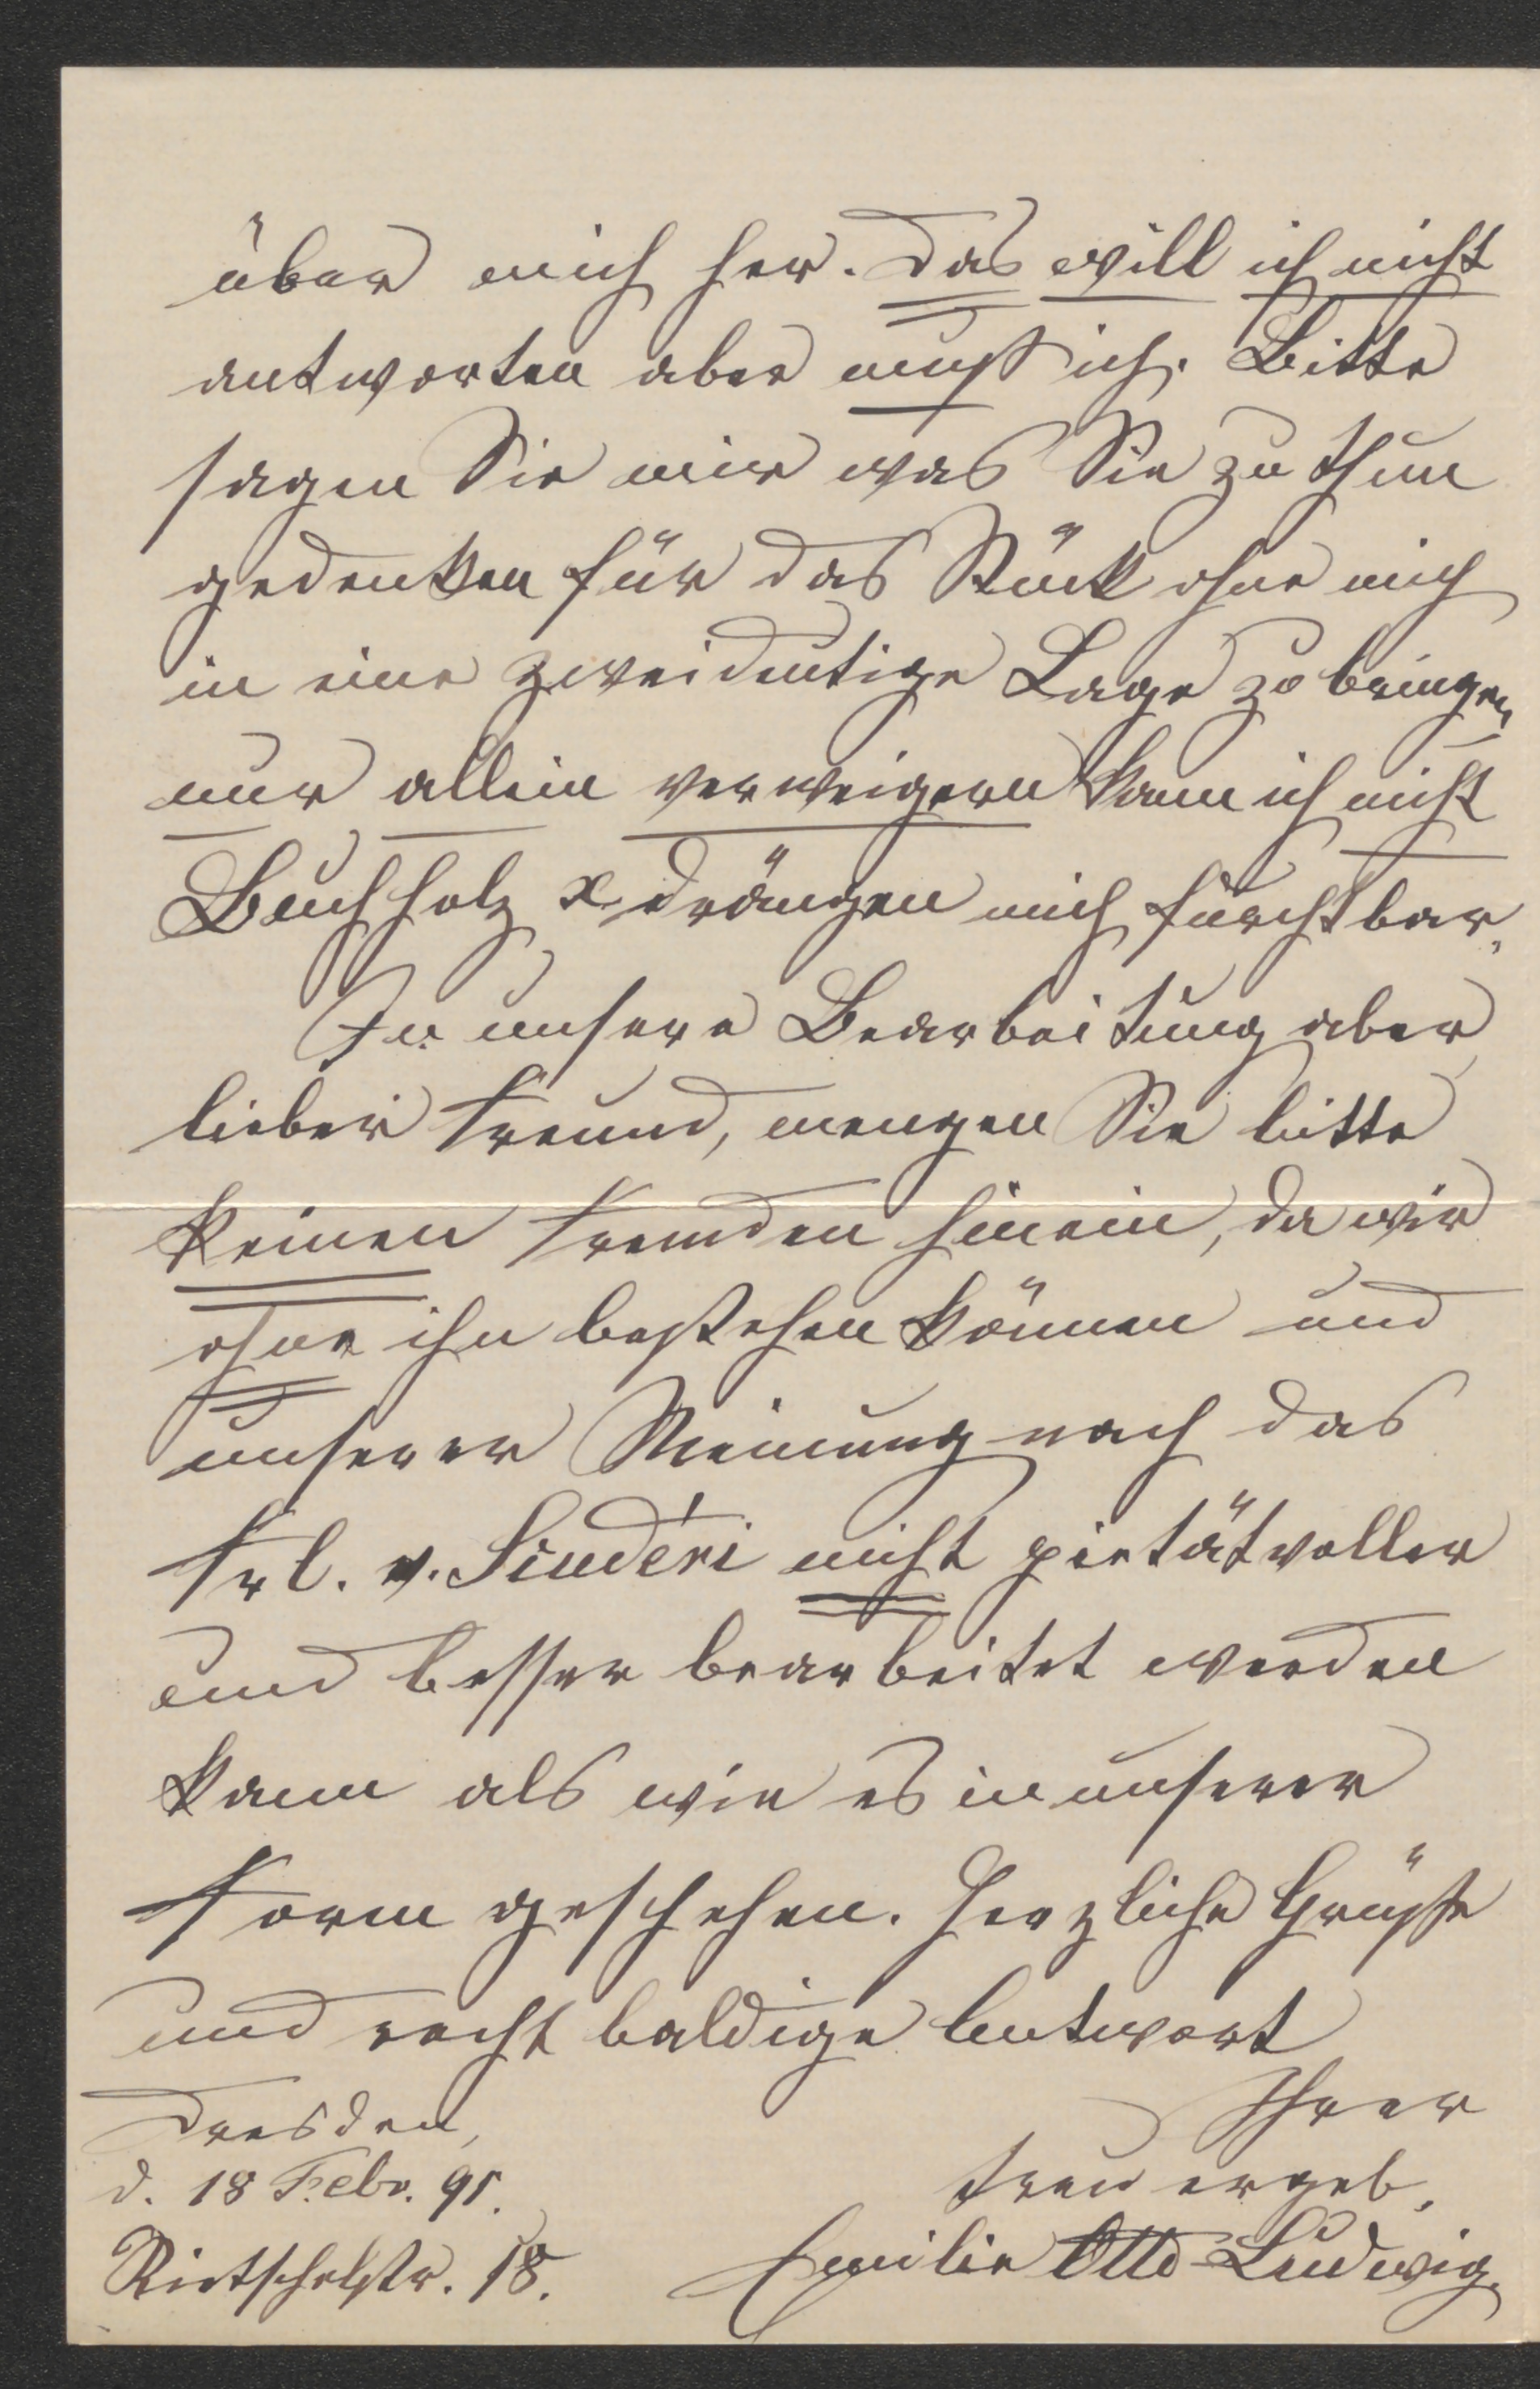 über mich her. Das will ich nicht
antworten aber muß ich. Bitte
sagen Sie mir was Sie zu thun
gedenken für das Stück ohne mich
in eine zweideutige Lage zu bringen,
nur allein verweigern kann ich nicht
Buchholz x drängen mich furchtbar.
In unsere Bearbeitung aber
lieber Freund, mengen Sie bitte
keinen Fremden hinein, da wir
ohne ihn bestehen können und
unserer Meinung nach das
Frl. v. Scudéri nicht pietätvoller
und besser bearbeitet werden
kann als wie es in unserer
Form geschehen. Herzliche Grüße
und recht baldige Antwort
Ihrer
treu ergeb.
Emilie Otto-Ludwig.
Dresden,
d. 18 Febr. 91.
Rietschelstr. 18.